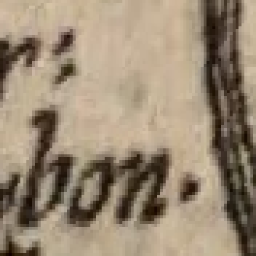 r:
bon.